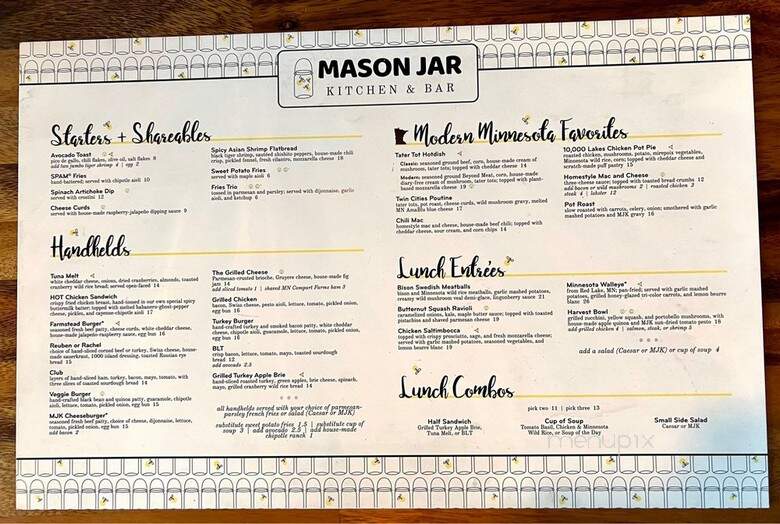 MASON JAR
KITCHEN & BAR
Starters + Shareables
Avocado Toast
pico de gallo, chili flakes, olive oil, salt flakes 8
add two jumbo tiger shrimp 4 | egg 2
SPAM® Fries
hand-battered; served with chipotle aioli 10
Spinach Artichoke Dip
served with crostini 12
Cheese Curds
served with house-made raspberry-jalapeño dipping sauce 9
Spicy Asian Shrimp Flatbread
black tiger shrimp, sautéed shishito peppers, house-made chili
crisp, pickled fennel, fresh cilantro, mozzarella cheese 18
Sweet Potato Fries
served with maple aioli 6
Fries Trio
tossed in parmesan and parsley; served with dijonnaise, garlic
aioli, and ketchup 6
Handhelds
Tuna Melt
white cheddar cheese, onions, dried cranberries, almonds, toasted
cranberry wild rice bread; served open-faced 14
HOT Chicken Sandwich
crispy fried chicken breast, hand-tossed in our own special spicy
buttermilk batter; topped with melted habanero-ghost-pepper
cheese, pickles, and cayenne-chipotle aioli 17
Farmstead Burger*
seasoned fresh beef patty, cheese curds, white cheddar cheese,
house-made jalapeño-raspberry sauce, egg bun 16
Reuben or Rachel
choice of hand-sliced corned beef or turkey, Swiss cheese, house-
made sauerkraut, 1000 island dressing, toasted Russian rye
bread 15
Club
layers of hand-sliced ham, turkey, bacon, tomato, with
three slices of toasted sourdough bread 14
Veggie Burger
hand-crafted black bean and quinoa patty, guacamole, chipotle
aioli, lettuce, tomato, pickled onion, egg bun 15
MJK Cheeseburger*
seasoned fresh beef patty, choice of cheese, dijonnaise, lettuce,
tomato, pickled onion, egg bun 15
add bacon 2
The Grilled Cheese
Parmesan-crusted brioche, Gruyere cheese, house-made fig
jam 14
add sliced tomato 1 | shaved MN Compart Farms ham 3
Grilled Chicken
bacon, Swiss cheese, pesto aioli, lettuce, tomato, pickled onion,
egg bun 16
Turkey Burger
hand-crafted turkey and smoked bacon patty, white cheddar
cheese, chipotle aioli, guacamole, lettuce, tomato, pickled onion,
egg bun 16
BLT
crisp bacon, lettuce, tomato, mayo, toasted sourdough
bread 12
add avocado 2.5
Grilled Turkey Apple Brie
hand-sliced roasted turkey, green apples, brie cheese, spinach,
mayo, grilled cranberry wild rice bread 14
all handhelds served with your choice of parmesan-
parsley french fries or salad (Caesar or MJK)
substitute sweet potato fries 1.5 | substitute cup of
soup 3 | add avocado 2.5 | add house-made
chipotle ranch 1
Modern Minnesota Favorites
Tater Tot Hotdish
Classic: seasoned ground beef, corn, house-made cream of
mushroom, tater tots; topped with cheddar cheese 14
Modern: seasoned ground Beyond Meat, corn, house-made
diary-free cream of mushroom, tater tots; topped with plant-
based mozzarella cheese 19
Twin Cities Poutine
tater tots, pot roast, cheese curds, wild mushroom gravy, melted
MN Amablu blue cheese 17
Chili Mac
homestyle mac and cheese, house-made beef chili; topped with
cheddar cheese, sour cream, and corn chips 14
10,000 Lakes Chicken Pot Pie
roasted chicken, mushrooms, potato, mirepoix vegetables,
Minnesota wild rice, corn; topped with cheddar cheese and
scratch-made puff pastry 15
Homestyle Mac and Cheese
three-cheese sauce; topped with toasted bread crumbs 12
add bacon or wild mushrooms 2 | roasted chicken 3
steak 4 | lobster 12
Pot Roast
slow roasted with carrots, celery, onion; smothered with garlic
mashed potatoes and MJK gravy 16
Lunch Entrées
Bison Swedish Meatballs
bison and Minnesota wild rice meatballs, garlic mashed potatoes,
creamy wild mushroom veal demi-glace, lingonberry sauce 21
Butternut Squash Ravioli
caramelized onions, kale, maple butter sauce; topped with toasted
pistachios and shaved parmesan cheese 19
Chicken Saltimbocca
topped with crispy prosciutto, sage, and fresh mozzarella cheese;
served with garlic mashed potatoes, seasoned vegetables, and
lemon beurre blanc 19
Minnesota Walleye*
from Red Lake, MN; pan-fried; served with garlic mashed
potatoes, grilled honey-glazed tri-color carrots, and lemon beurre
blanc 26
Harvest Bowl
grilled zucchini, yellow squash, and portobello mushrooms, with
house-made apple quinoa and MJK sun-dried tomato pesto 18
add grilled chicken 4 | salmon, steak, or shrimp 5
add a salad (Caesar or MJK) or cup of soup 4
Lunch Combos
pick two 11 | pick three 13
Half Sandwich
Grilled Turkey Apple Brie,
Tuna Melt, or BLT
Cup of Soup
Tomato Basil, Chicken & Minnesota
Wild Rice, or Soup of the Day
Small Side Salad
Caesar or MJK
menupix